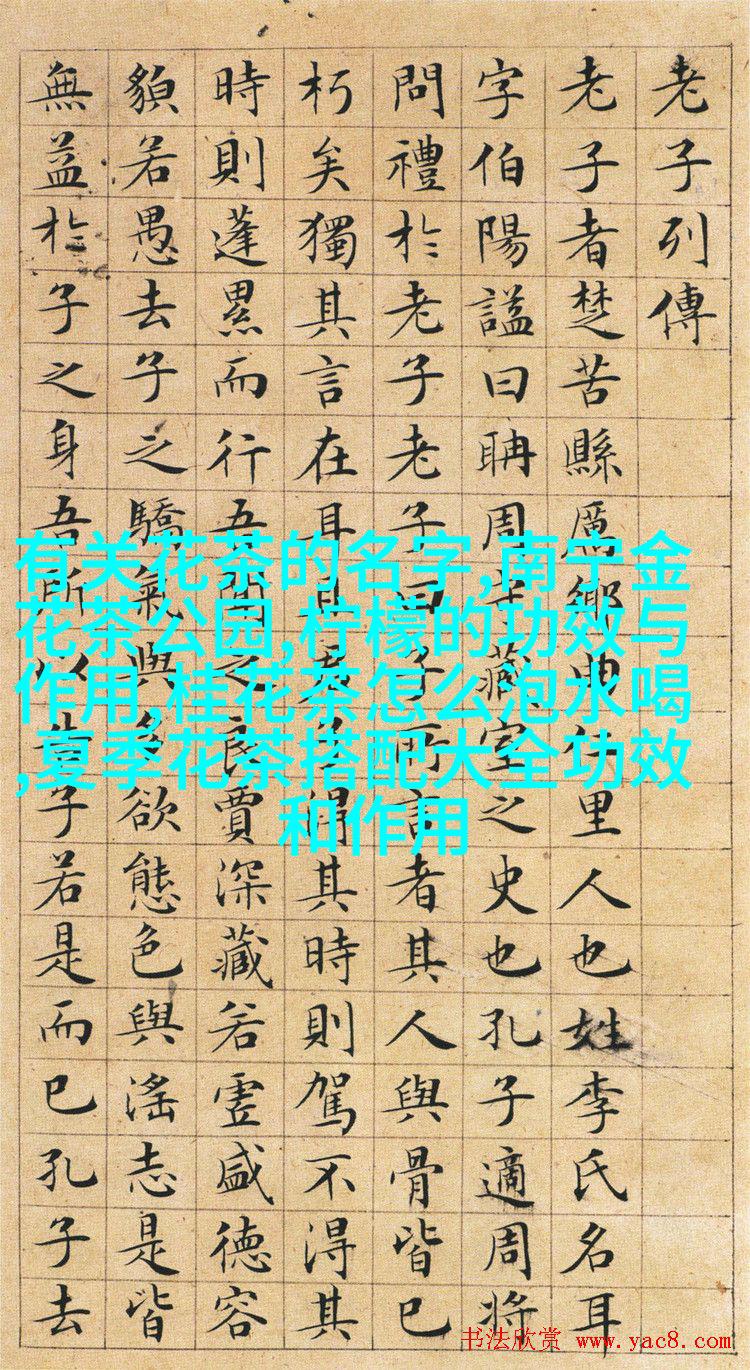 老子列傳
老子者楚苦縣厲鄉曲仁里人也姓李氏名耳
字伯陽謚曰聃周守藏室之史也孔子適周將
問禮於老子老子曰子所言者其人與骨皆已
朽矣獨其言在耳且君子得其時則駕不得其
時則蓬累而行吾聞之良賈深藏若虛盛德容
貌若愚去子之驕氣與多欲態色與淫志是皆
無益於子之身吾所以告子若是而已孔子去
有关花茶的名字,南宁金
花茶公园,柠檬的功效与
作用,桂花茶怎么泡水喝
,夏季花茶搭配大全功效
和作用
书法欣赏 www.yac8.com